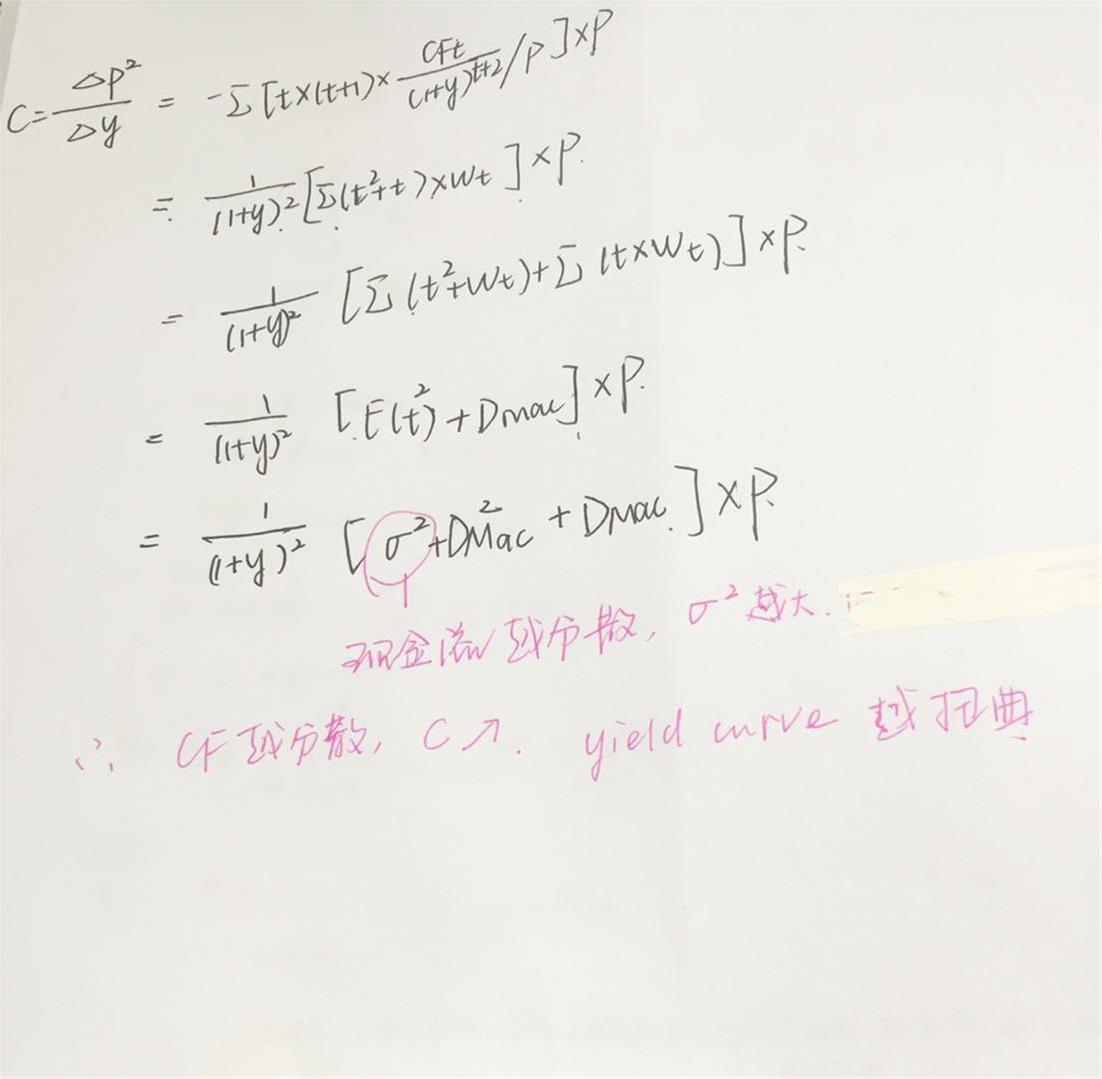 C = ΔP² / Δy = -Σ [t×(t+1)× CFt / (1+y)^{t+2} / P ] × P
= 1/(1+y)² [Σ(t²+t)×Wt ] × P.
= 1/(1+y)² [Σ (t²+Wt)+Σ (t×Wt)] × P.
= 1/(1+y)² [E(t²) + Dmac] × P.
= 1/(1+y)² [σ²+DMac² + DMac.] × P.
现金流越分散, σ²越大.
∴ CF越分散, C↗. yield curve 越扭曲